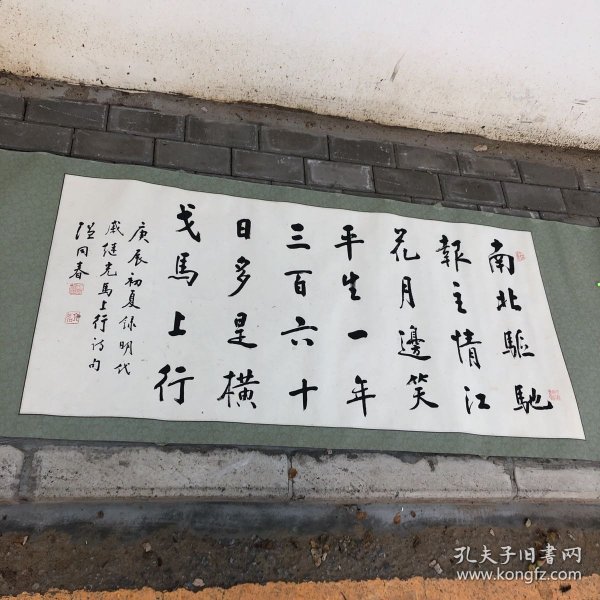 南北驅馳
報主情江
花月邊笑
平生一年
三百六十
日多是橫
戈馬上行
庚辰初夏錄明代
戚继光馬上行詩句
同春
孔夫子旧书网
www.kongfz.com